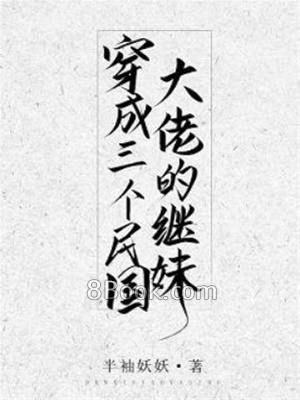 穿成三个民国
大佬的继妹
8Book.com
半袖妖妖·著